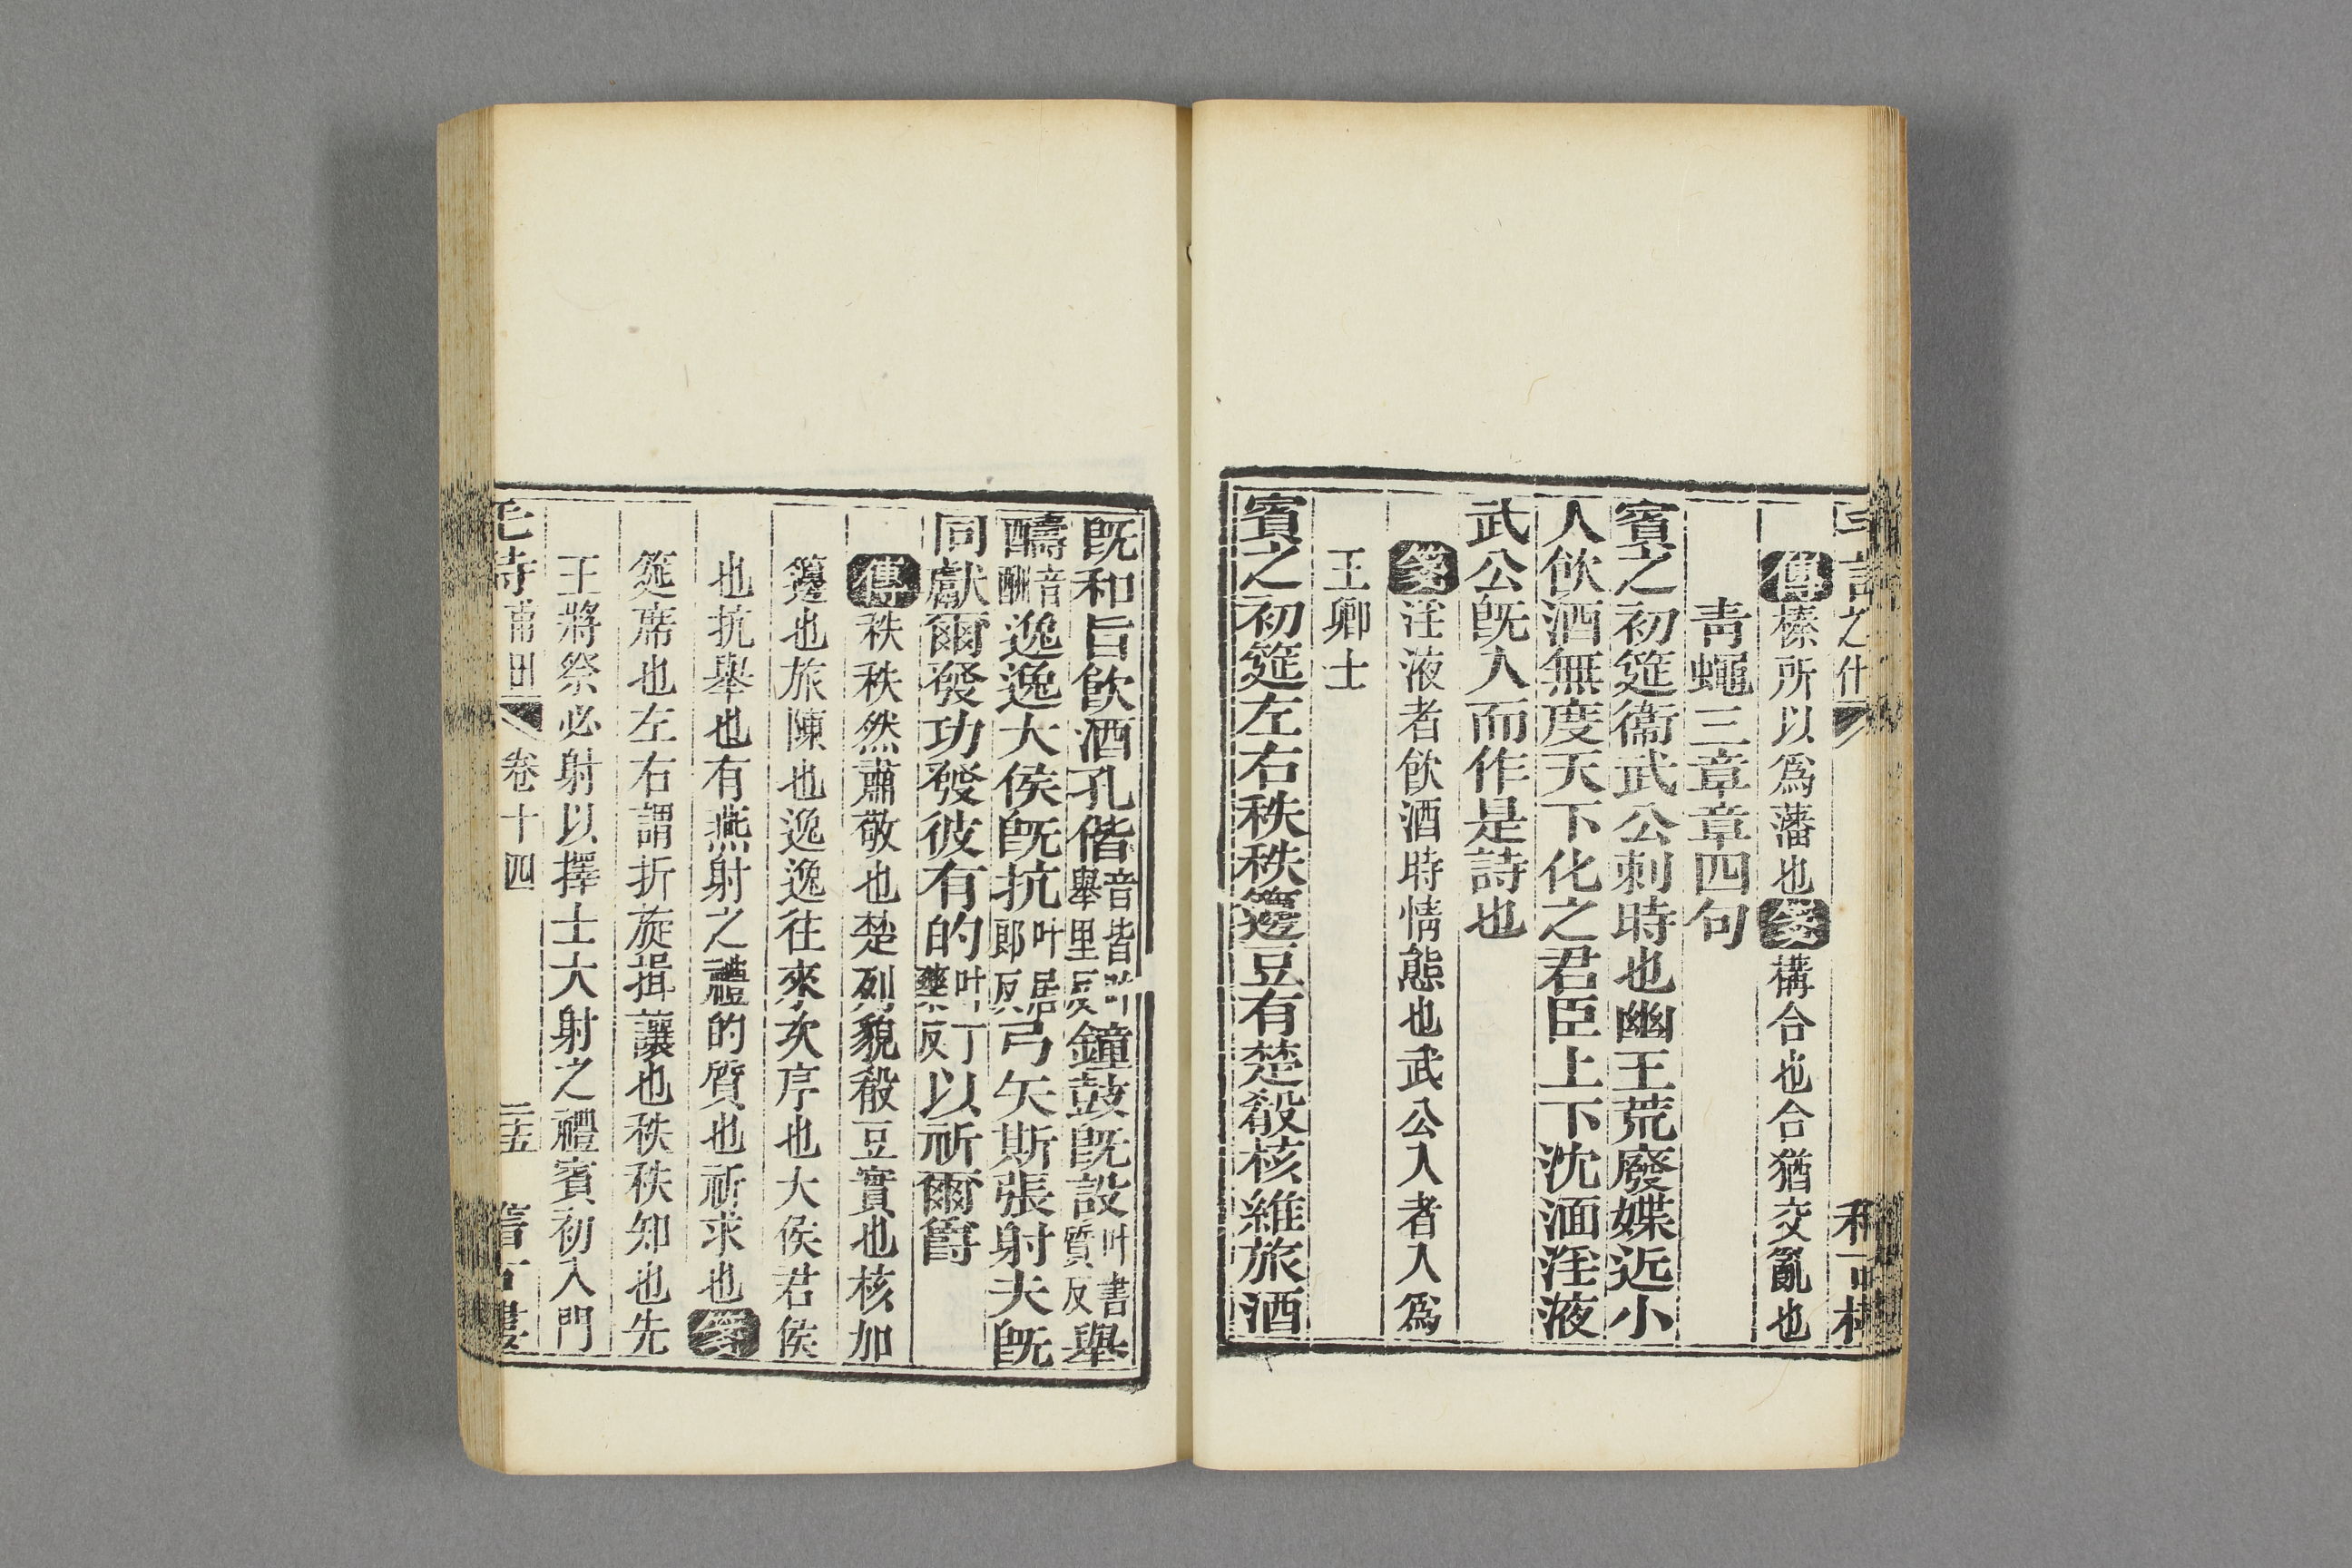 傳榛所以爲藩也箋構合也合猶交亂也
青蠅三章章四句
賓之初筵衞武公刺時也幽王荒廢媟近小
人飲酒無度天下化之君臣上下沈湎淫液
武公旣入而作是詩也
箋淫液者飲酒時情態也武公入者入爲
王卿士
賓之初筵左右秩秩籩豆有楚殽核維旅酒
旣和旨飲酒孔偕音皆叶舉里反鐘鼓旣設叶書質反舉
醻音酬逸逸大侯旣抗叶居郞反弓矢斯張射夫旣
同獻爾發功發彼有的叶丁藥反以祈爾爵
傳秩秩然肅敬也楚列貌殽豆實也核加
籩也旅陳也逸逸往來次序也大侯君侯
也抗舉也有燕射之禮的質也祈求也箋
筵席也左右謂折旋揖讓也秩秩知也先
王將祭必射以擇士大射之禮賓初入門
毛詩 甫田 卷十四 二十五